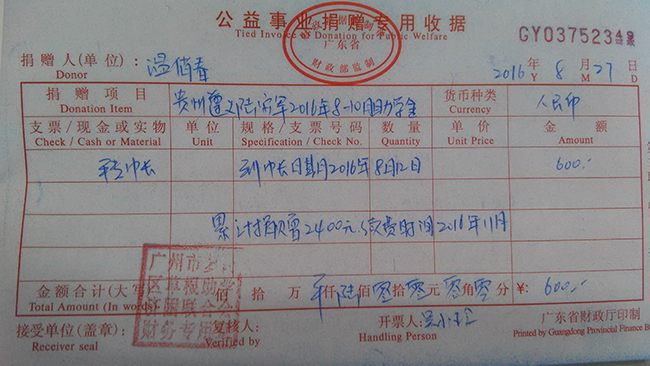 公益事业捐赠专用收据
Tied Invoice of Donation for Public Welfare
广东省
财政部监制
GY03752349
捐赠人(单位):
Donor
2016年 8月 27日
Y M D
捐赠项目 贵州遵义陆 军2016年8-10月助学金 货币种类 人民币
Donation Item Currency
支票/现金或实物 单位 规格/支票号码 数量 单价 金额
Check / Cash or Material Unit Specification / Check No. Quantity Unit Price Amount
到帐日期2016年8月12日 600.-
累计捐赠2400元,续费时间2016年11月
广州市
区草根助学
联合会
财务专用
金额合计(大写) 佰 拾 万 仟陆佰零拾零元零角零分 ¥: 600.-
Total Amount (In words)
接受单位(盖章): 复核人: 开票人:
Receiver seal Verified by Handling Person
广东省财政厅印制
Printed by Guangdong Provincial Finance